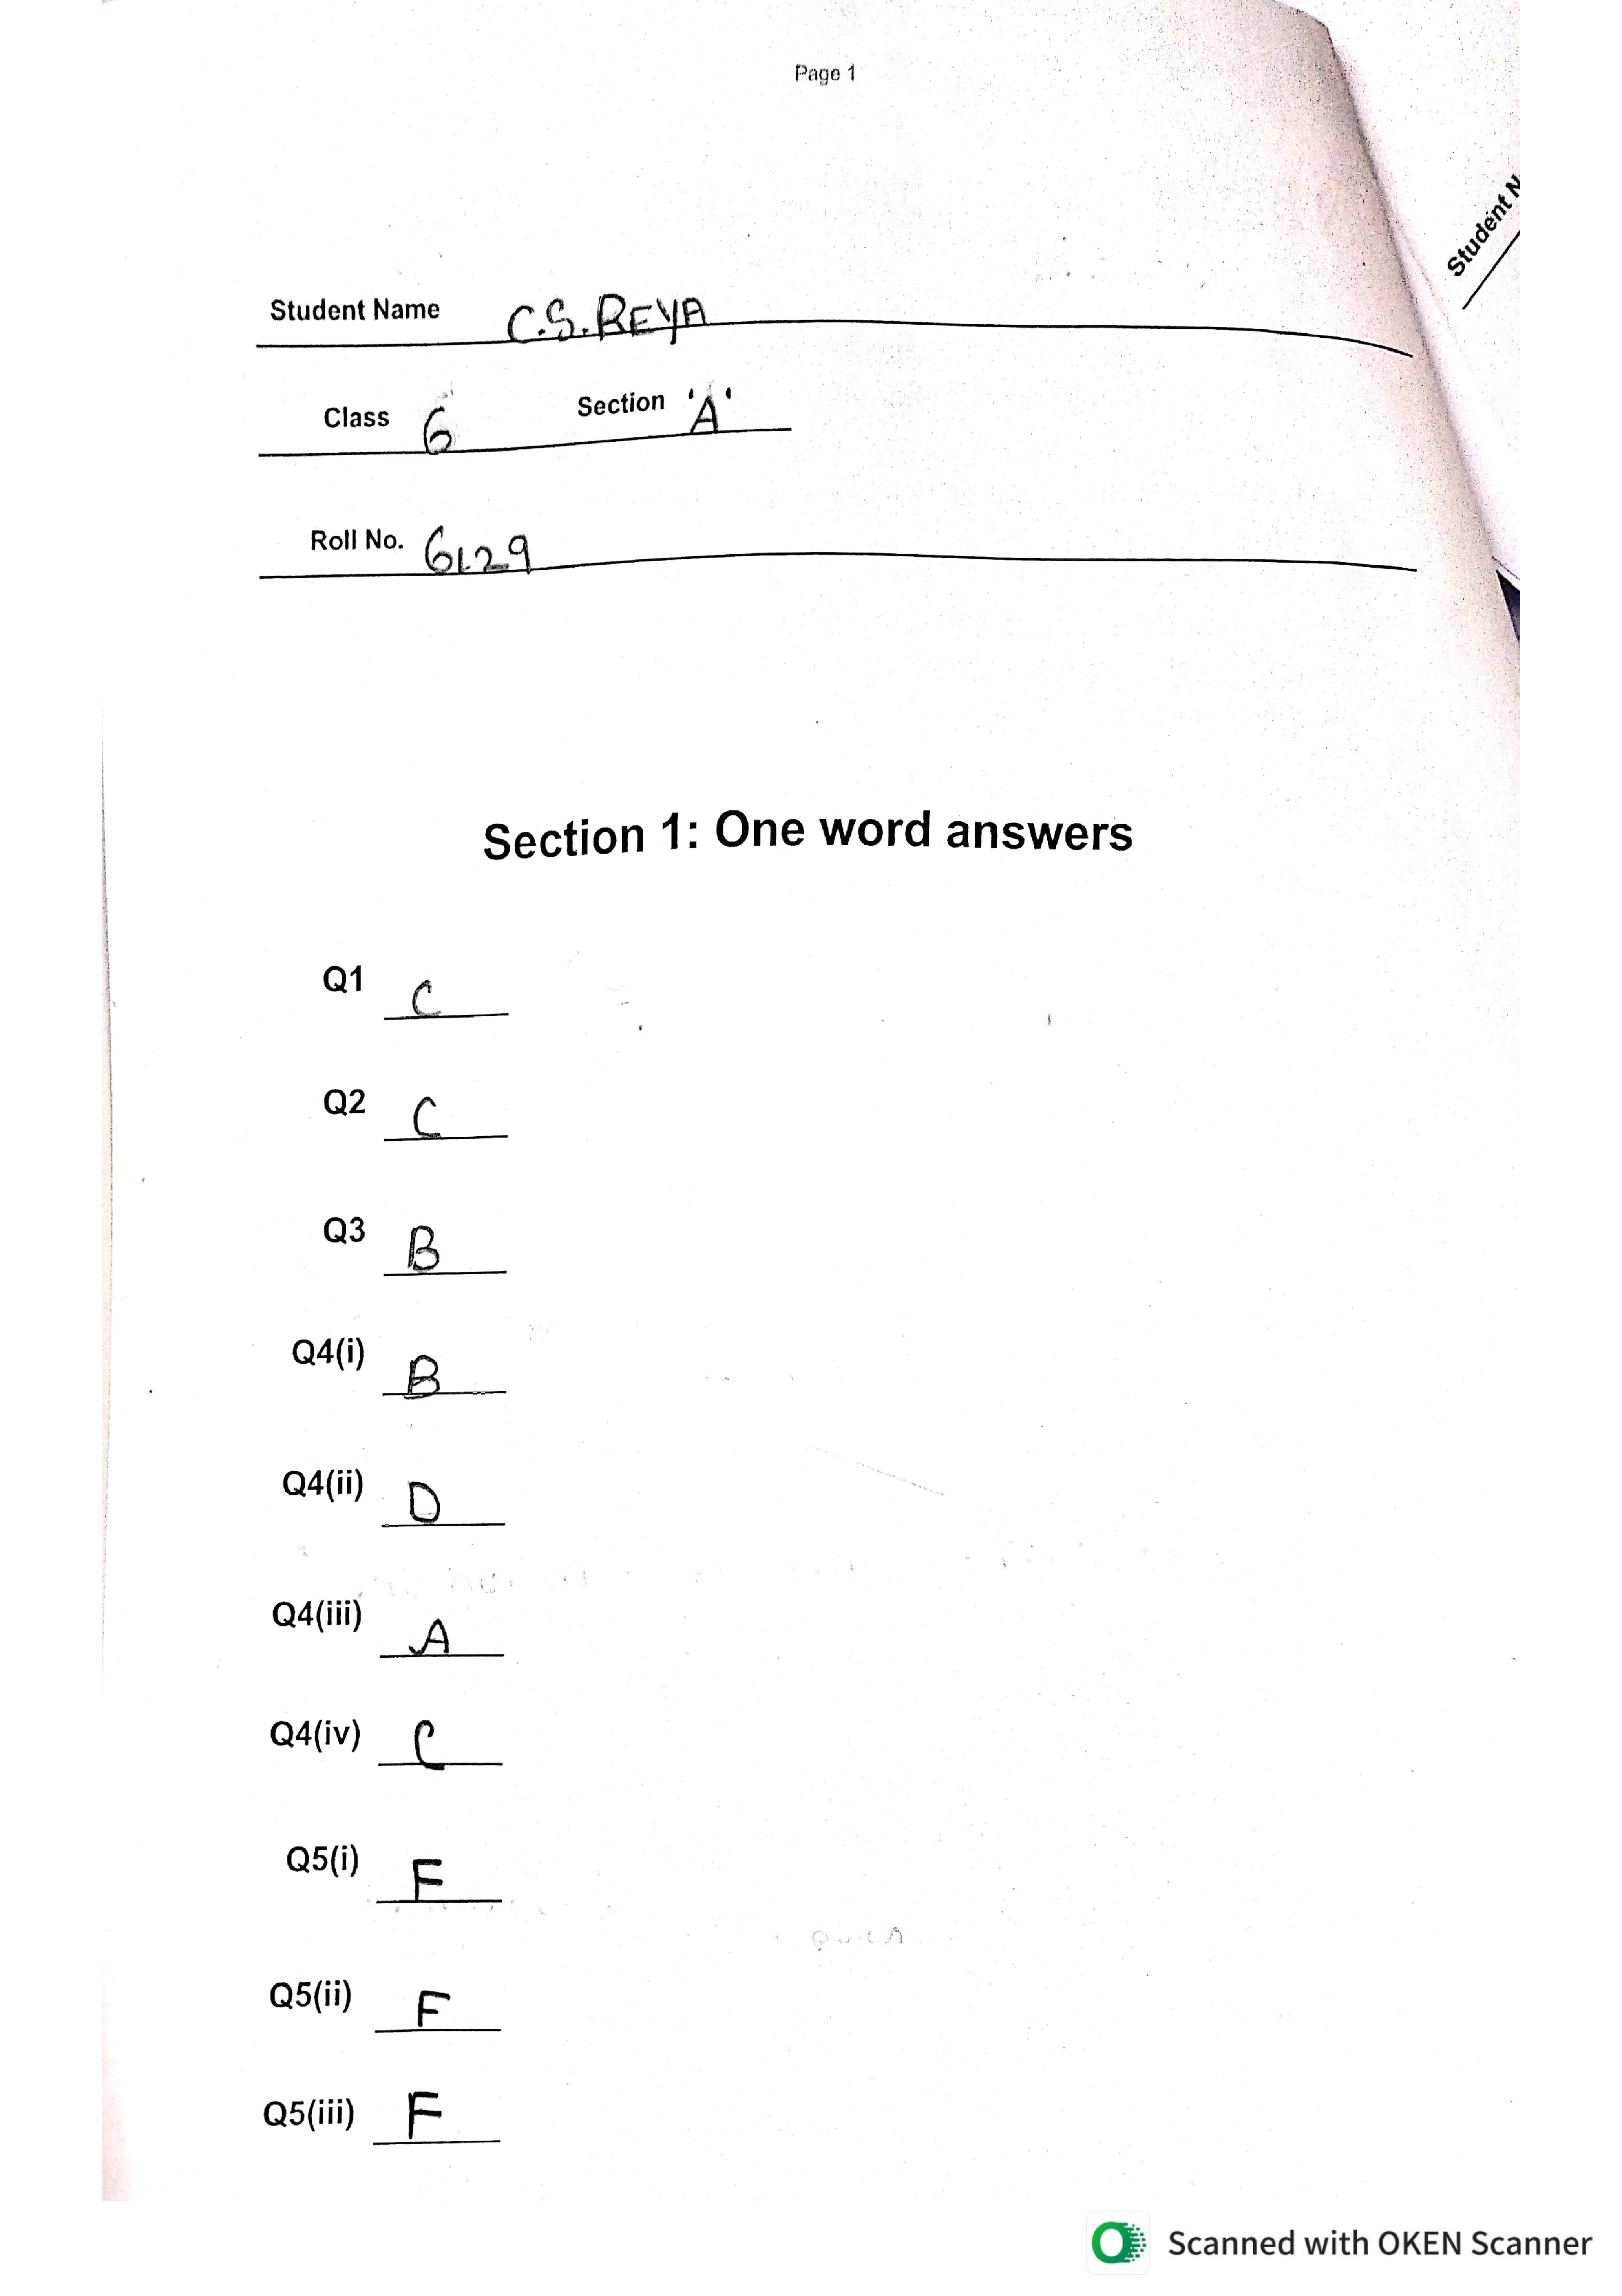 Page 1
Student N
Student Name C.S.REYA
Class 6 Section 'A'
Roll No. 6129
Section 1: One word answers
Q1 C
Q2 C
Q3 B
Q4(i) B
Q4(ii) D
Q4(iii) A
Q4(iv) C
Q5(i) F
Q5(ii) F
Q5(iii) F
Scanned with OKEN Scanner